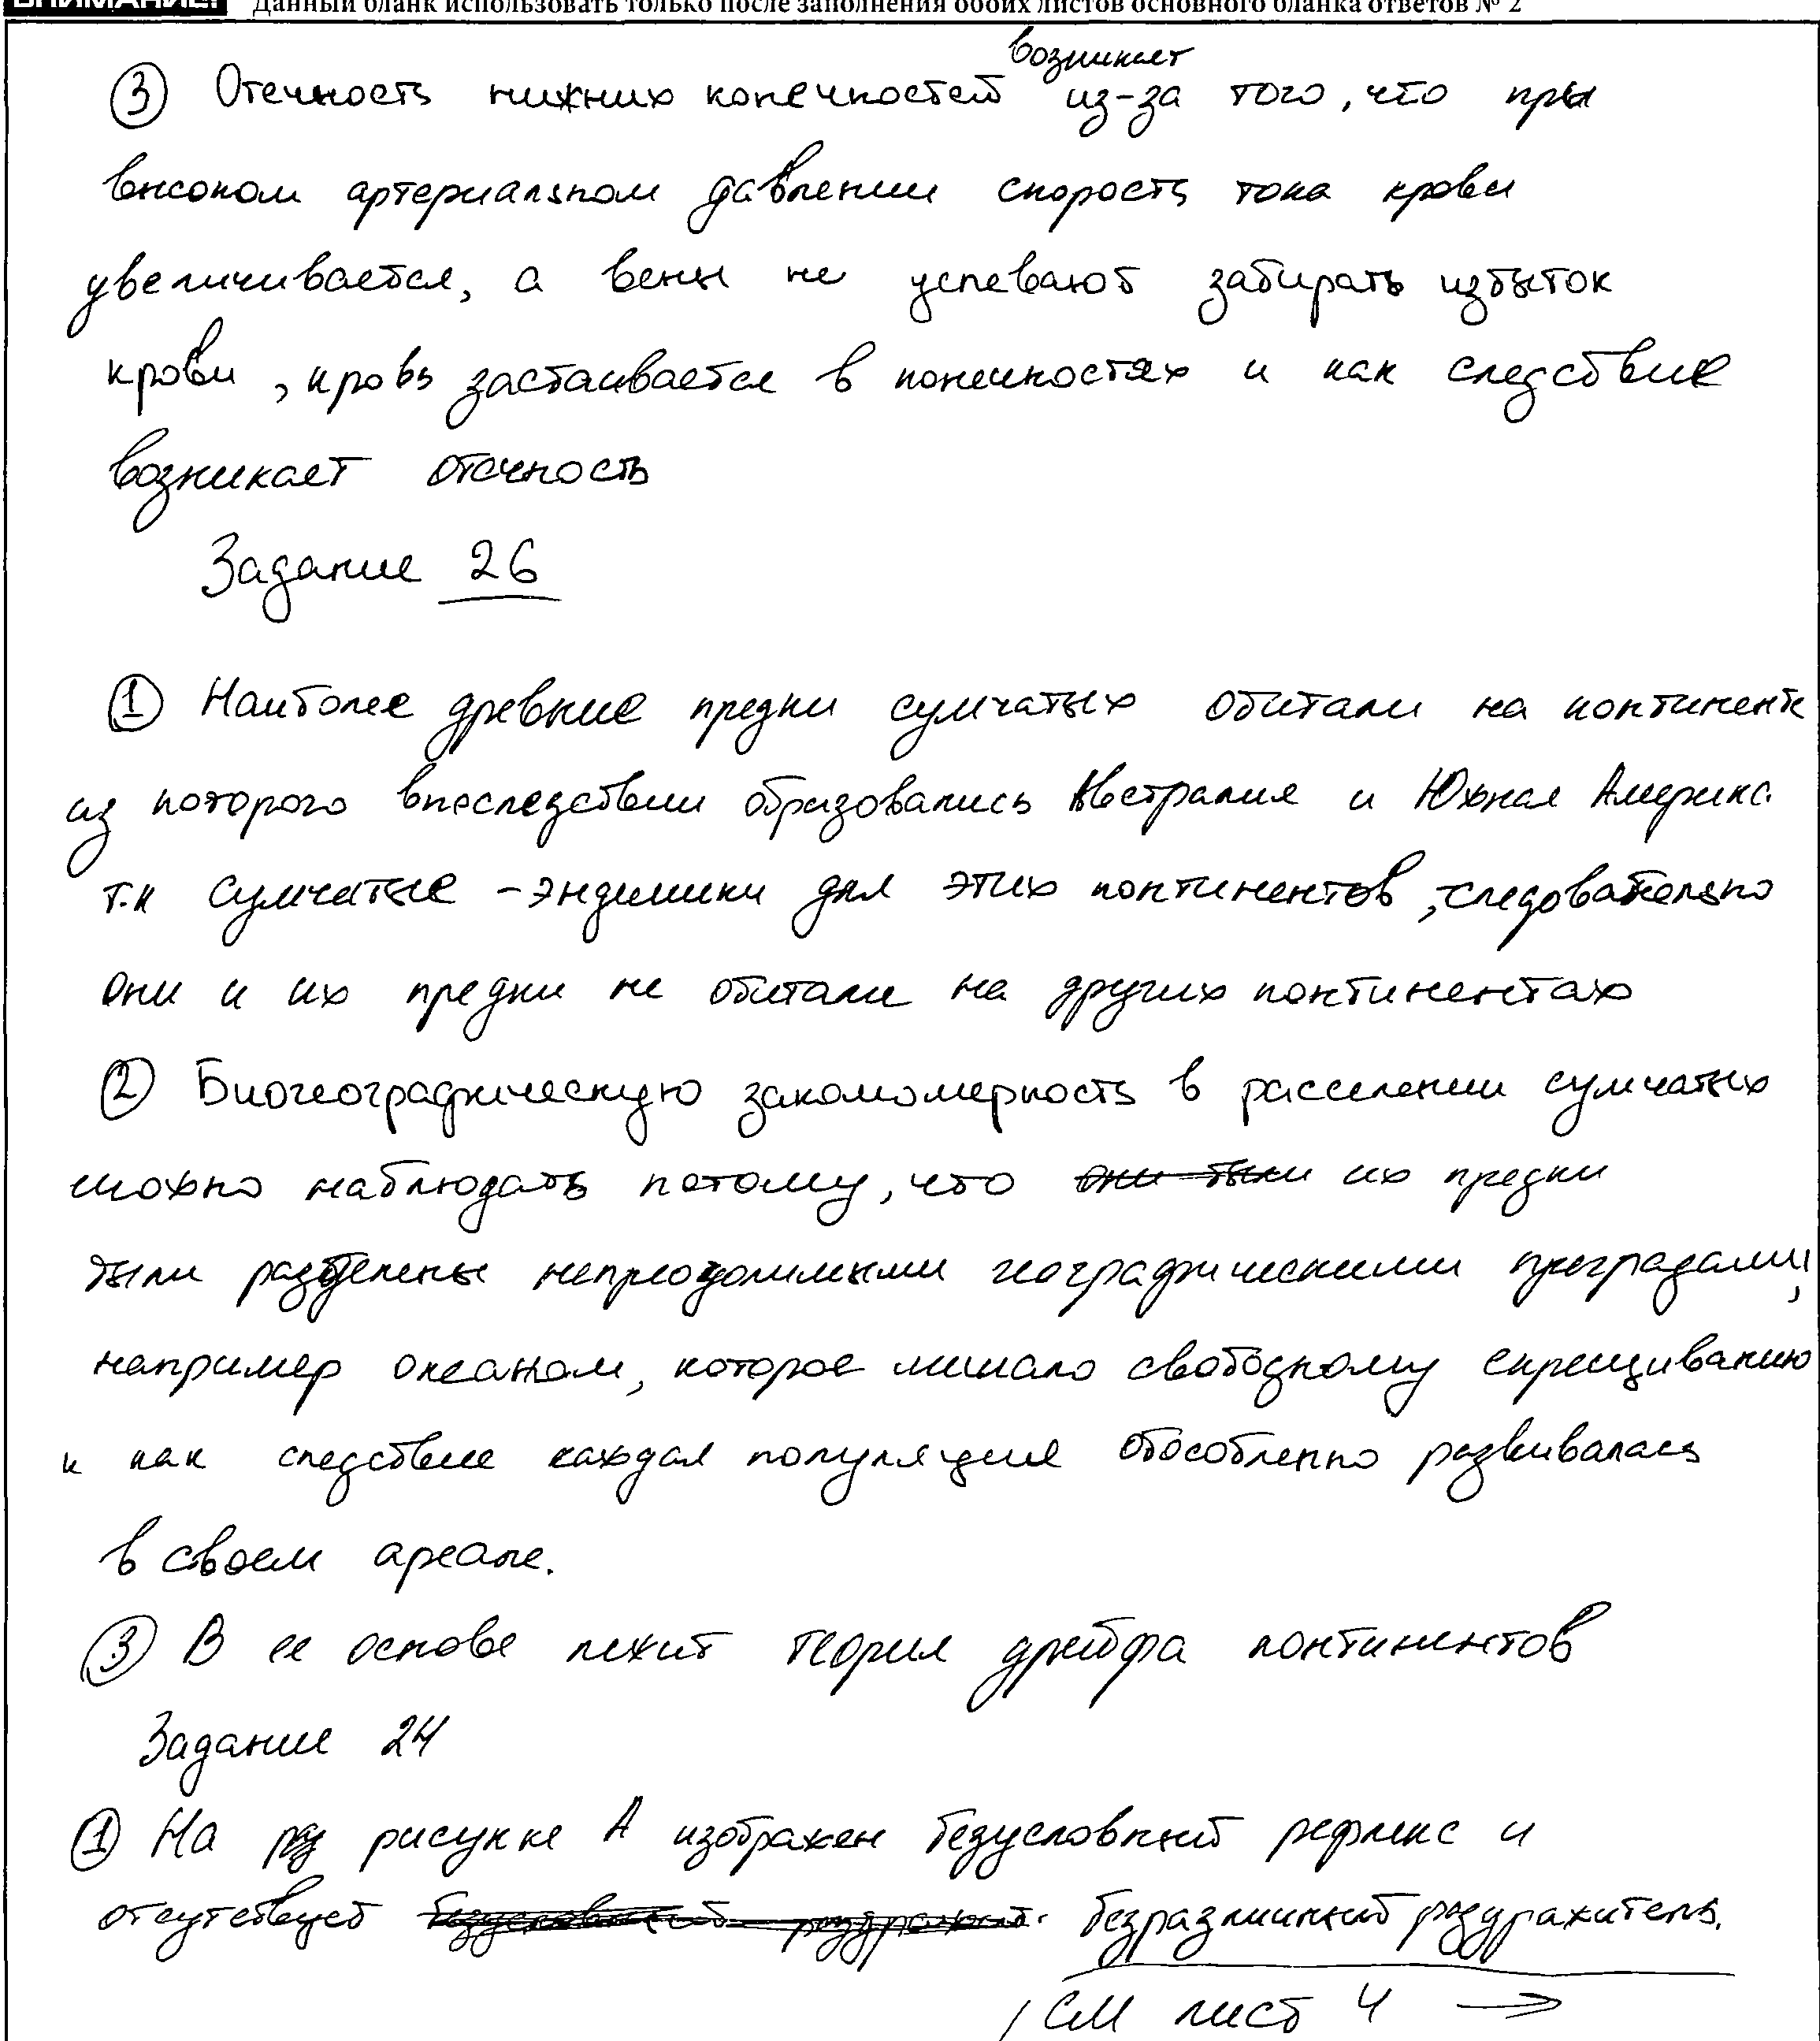 ВНИМАНИЕ! Данный бланк использовать только после заполнения обоих листов основного бланка ответов № 2
возникает
③ Отечность нижних конечностей из-за того, что при
высоком артериальном давлении скорость тока крови
увеличивается, а вены не успевают забирать избыток
крови, кровь застаивается в конечностях и как следствие
возникает отечность
Задание 26
① Наиболее древние предки сумчатых обитали на континенте
из которого впоследствии образовались Австралия и Южная Америка.
т.к сумчатые - эндемики для этих континентов, следовательно
они и их предки не обитали на других континентах
② Биогеографическую закомомерность в расселении сумчатых
можно наблюдать потому, что они были их предки
были разделены непреодолимыми географическими преградами,
например океаном, которое мешало свободному скрещиванию
и как следствие каждая популяция обособленно развивалась
в своем ареале.
③ В ее основе лежит теория дрейфа континентов
Задание 24
① На рисунке А изображен безусловный рефлекс и
отсутствует безусловный раздражит. безразличный раздражитель.
СМ лист 4 →